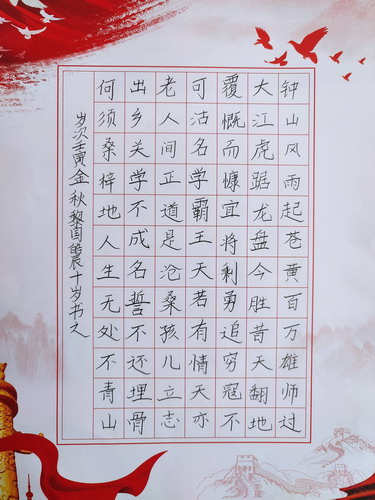 钟山风雨起苍黄百万雄师过
大江虎踞龙盘今胜昔天翻地
覆慨而慷宜将剩勇追穷寇不
可沽名学霸王天若有情天亦
老人间正道是沧桑孩儿立志
出乡关学不成名誓不还埋骨
何须桑梓地人生无处不青山
岁次壬寅金秋黎国十岁书之